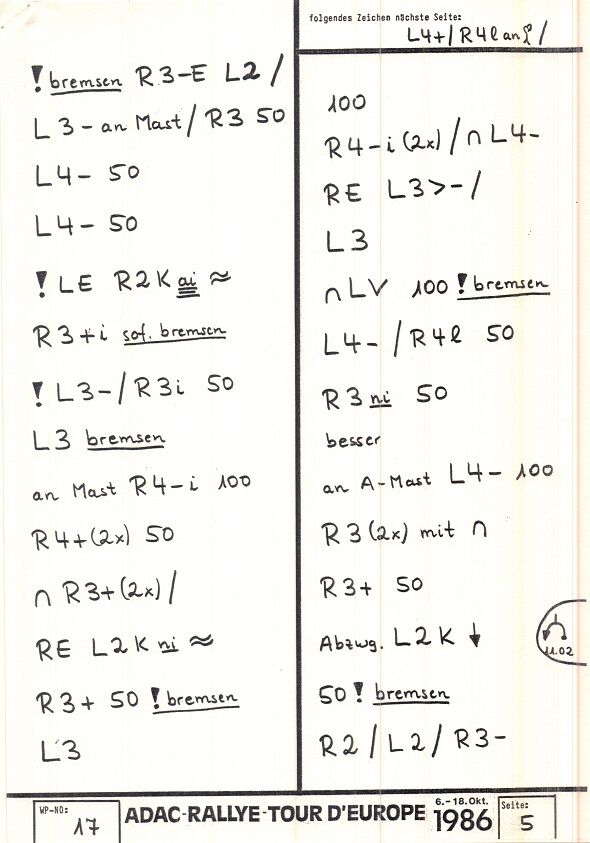 folgendes Zeichen nächste Seite:
L4+/ R4l an /
! bremsen R3-E L2 /
L3- an Mast / R3 50
L4- 50
L4- 50
! LE R2K ai ≈
R3+i sof. bremsen
! L3-/R3i 50
L3 bremsen
an Mast R4-i 100
R4+(2x) 50
∩ R3+(2x)/
RE L2K ni ≈
R3+ 50 ! bremsen
L3
100
R4-i (2x) / ∩ L4-
RE L3>-/
L3
∩ LV 100 ! bremsen
L4- / R4l 50
R3 ni 50
besser
an A-Mast L4- 100
R3 (2x) mit ∩
R3+ 50
Abzwg. L2K ↓
11.02
50 ! bremsen
R2 / L2 / R3-
WP-NO: 17
ADAC-RALLYE-TOUR D'EUROPE
6.-18.Okt. 1986
Seite: 5